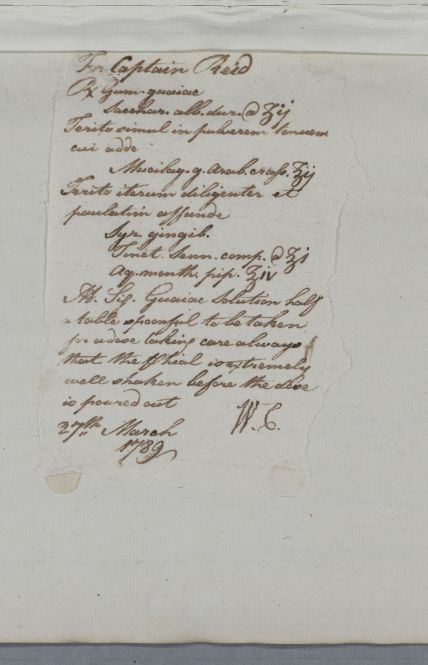 For Captain Reid
℞ Gum. guaiac
Sacchar. alb. dur. @ ʒij
Terito simul in pulverem tenuem
cui adde
Mucilag. g. arab. crass. ʒij
Terito iterum diligenter et
paulatim affunde
Syr. gingib.
Tinct. Senn. comp. @ ℥i
Aq. menth. pip. ℥iv
M. Sig. Guaiac Solution half
a table spoonful to be taken
for a dose taking care always
that the Phial is extremely
well shaken before the dose
is poured out
W. C.
27th March
1789